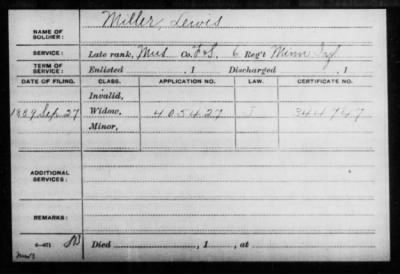 NAME OF SOLDIER: Miller, Lewis
SERVICE: Late rank, Mus Co. F&S, 6 Reg't Minn Inf
TERM OF SERVICE: Enlisted , 1 Discharged , 1
DATE OF FILING. CLASS. APPLICATION NO. LAW. CERTIFICATE NO.
Invalid,
1889 Sep 27 Widow, 405427 344747
Minor,
ADDITIONAL SERVICES:
REMARKS:
Died , 1 , at